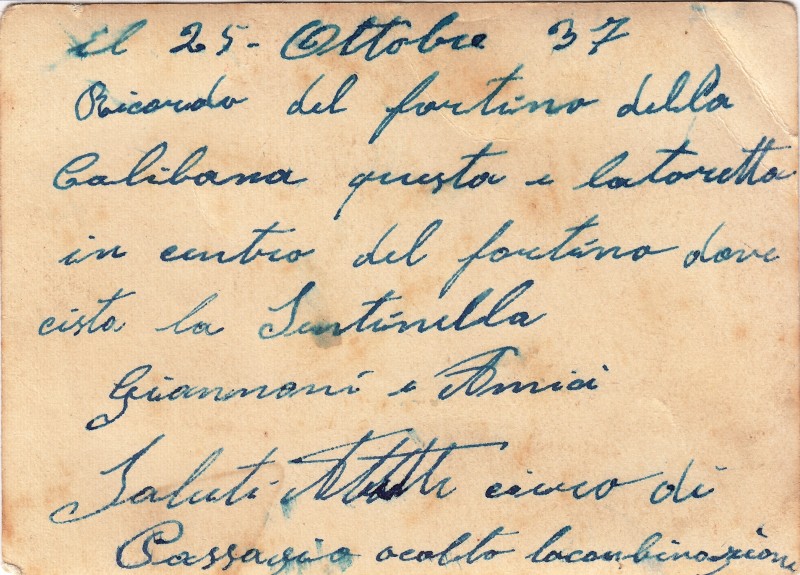 il 25- Ottobre 37
Ricordo del fortino della
Galibana questa e latoretta
in centro del fortino dove
cista la Sentinella
Giannoni e Amici
Saluti Atutti ciero di
Passagio ocolto locombinazione